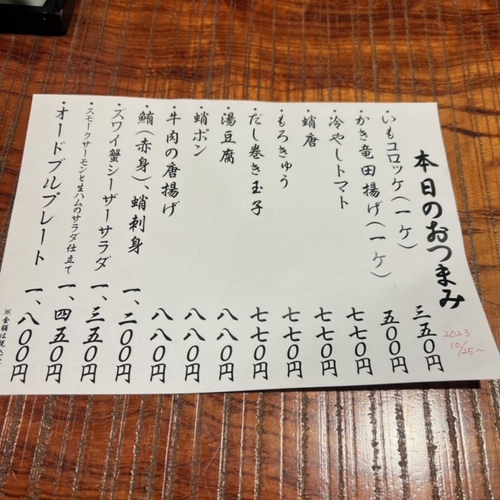 本日のおつまみ
2023
10/25~
・いもコロッケ(一ケ) 三五〇円
・かき竜田揚げ(一ケ) 五〇〇円
・冷やしトマト 七七〇円
・蛸唐 七七〇円
・もろきゅう 七七〇円
・だし巻き玉子 七七〇円
・湯豆腐 八八〇円
・蛸ポン 八八〇円
・牛肉の唐揚げ 八八〇円
・鮪(赤身)、蛸刺身 一、二〇〇円
・ズワイ蟹シーザーサラダ 一、三五〇円
・スモークサーモンと生ハムのサラダ仕立て 一、四五〇円
・オードブルプレート 一、八〇〇円
※金額は税込